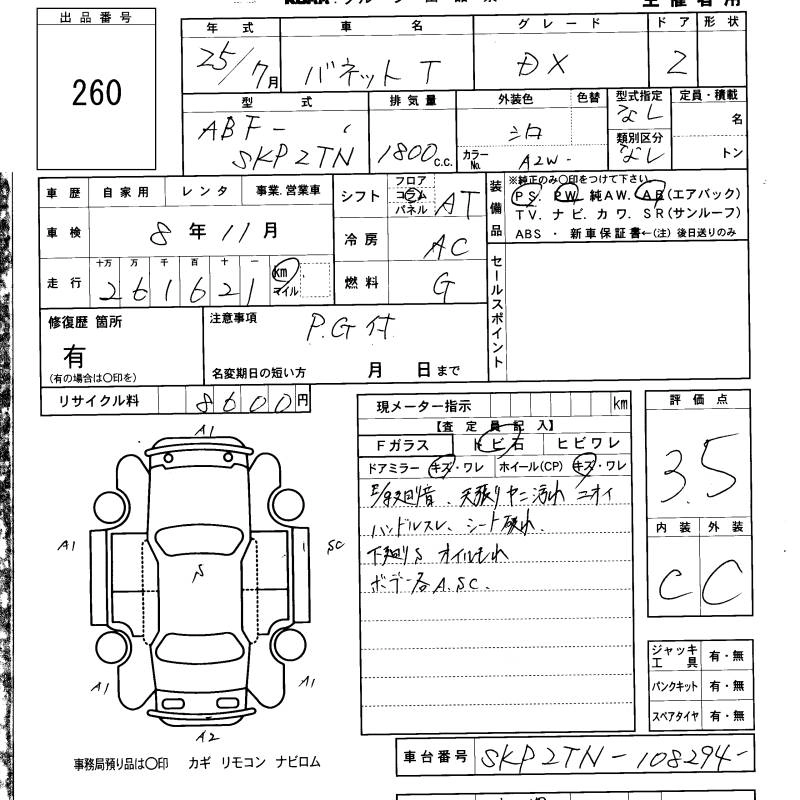 出品番号
260
年式 車名 グレード ドア 形状
25/7月 バネット T DX 2
型式 排気量 外装色 色替 型式指定 定員・積載
ABF- なし 名
SKP2TN 1800 c.c. シロ 類別区分
カラーNo. A2W- なし トン
車歴 自家用 レンタ 事業.営業車
シフト フロア コラム パネル AT
装備品 ※純正のみ〇印をつけて下さい
PS. PW. 純AW. AB(エアバック)
TV. ナビ. カワ. SR(サンルーフ)
ABS ・ 新車保証書←(注) 後日送りのみ
車検 8年11月
冷房 AC
走行 十万 万 千 百 十 一
261621 km マイル
燃料 G
セールスポイント
修復歴 箇所
有
(有の場合は〇印を)
注意事項 P.G付
名変期日の短い方 月 日まで
リサイクル料 8600円
現メーター指示 km
【査定員記入】
Fガラス トビ石 ヒビワレ
ドアミラー キズ・ワレ ホイール(CP) キズ・ワレ
異音、天張りヤニ汚れ ニオイ
ハンドルスレ、シート破れ、
下廻りS オイルもれ
ボデー各A.SC.
評価点
3.5
内装 外装
C C
A1
A1
SC
S
A1
A1
A2
ジャッキ 工具 有・無
パンクキット 有・無
スペアタイヤ 有・無
事務局預り品は〇印 カギ リモコン ナビロム
車台番号 SKP2TN-108294-